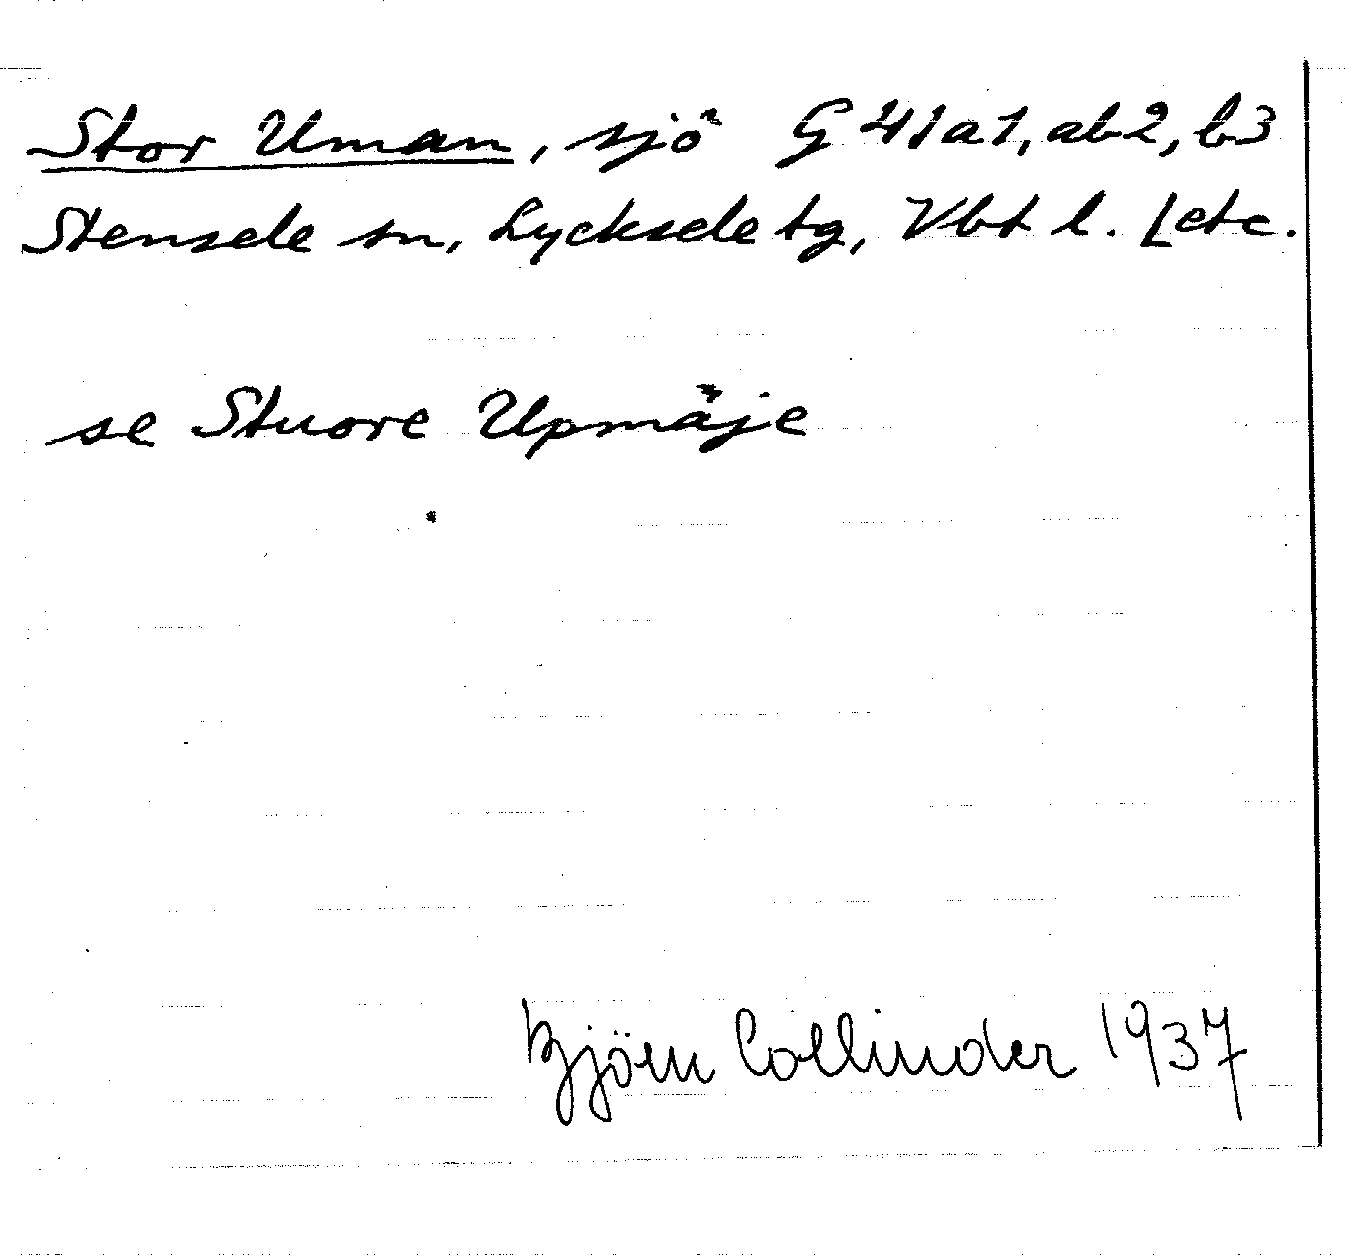 Stor Uman, sjö G 41a1, ab2, b3
Stensele sn, Lycksele tg, Vbt l. [etc.
se Stuore Upmäje
Björn Collinder 1937